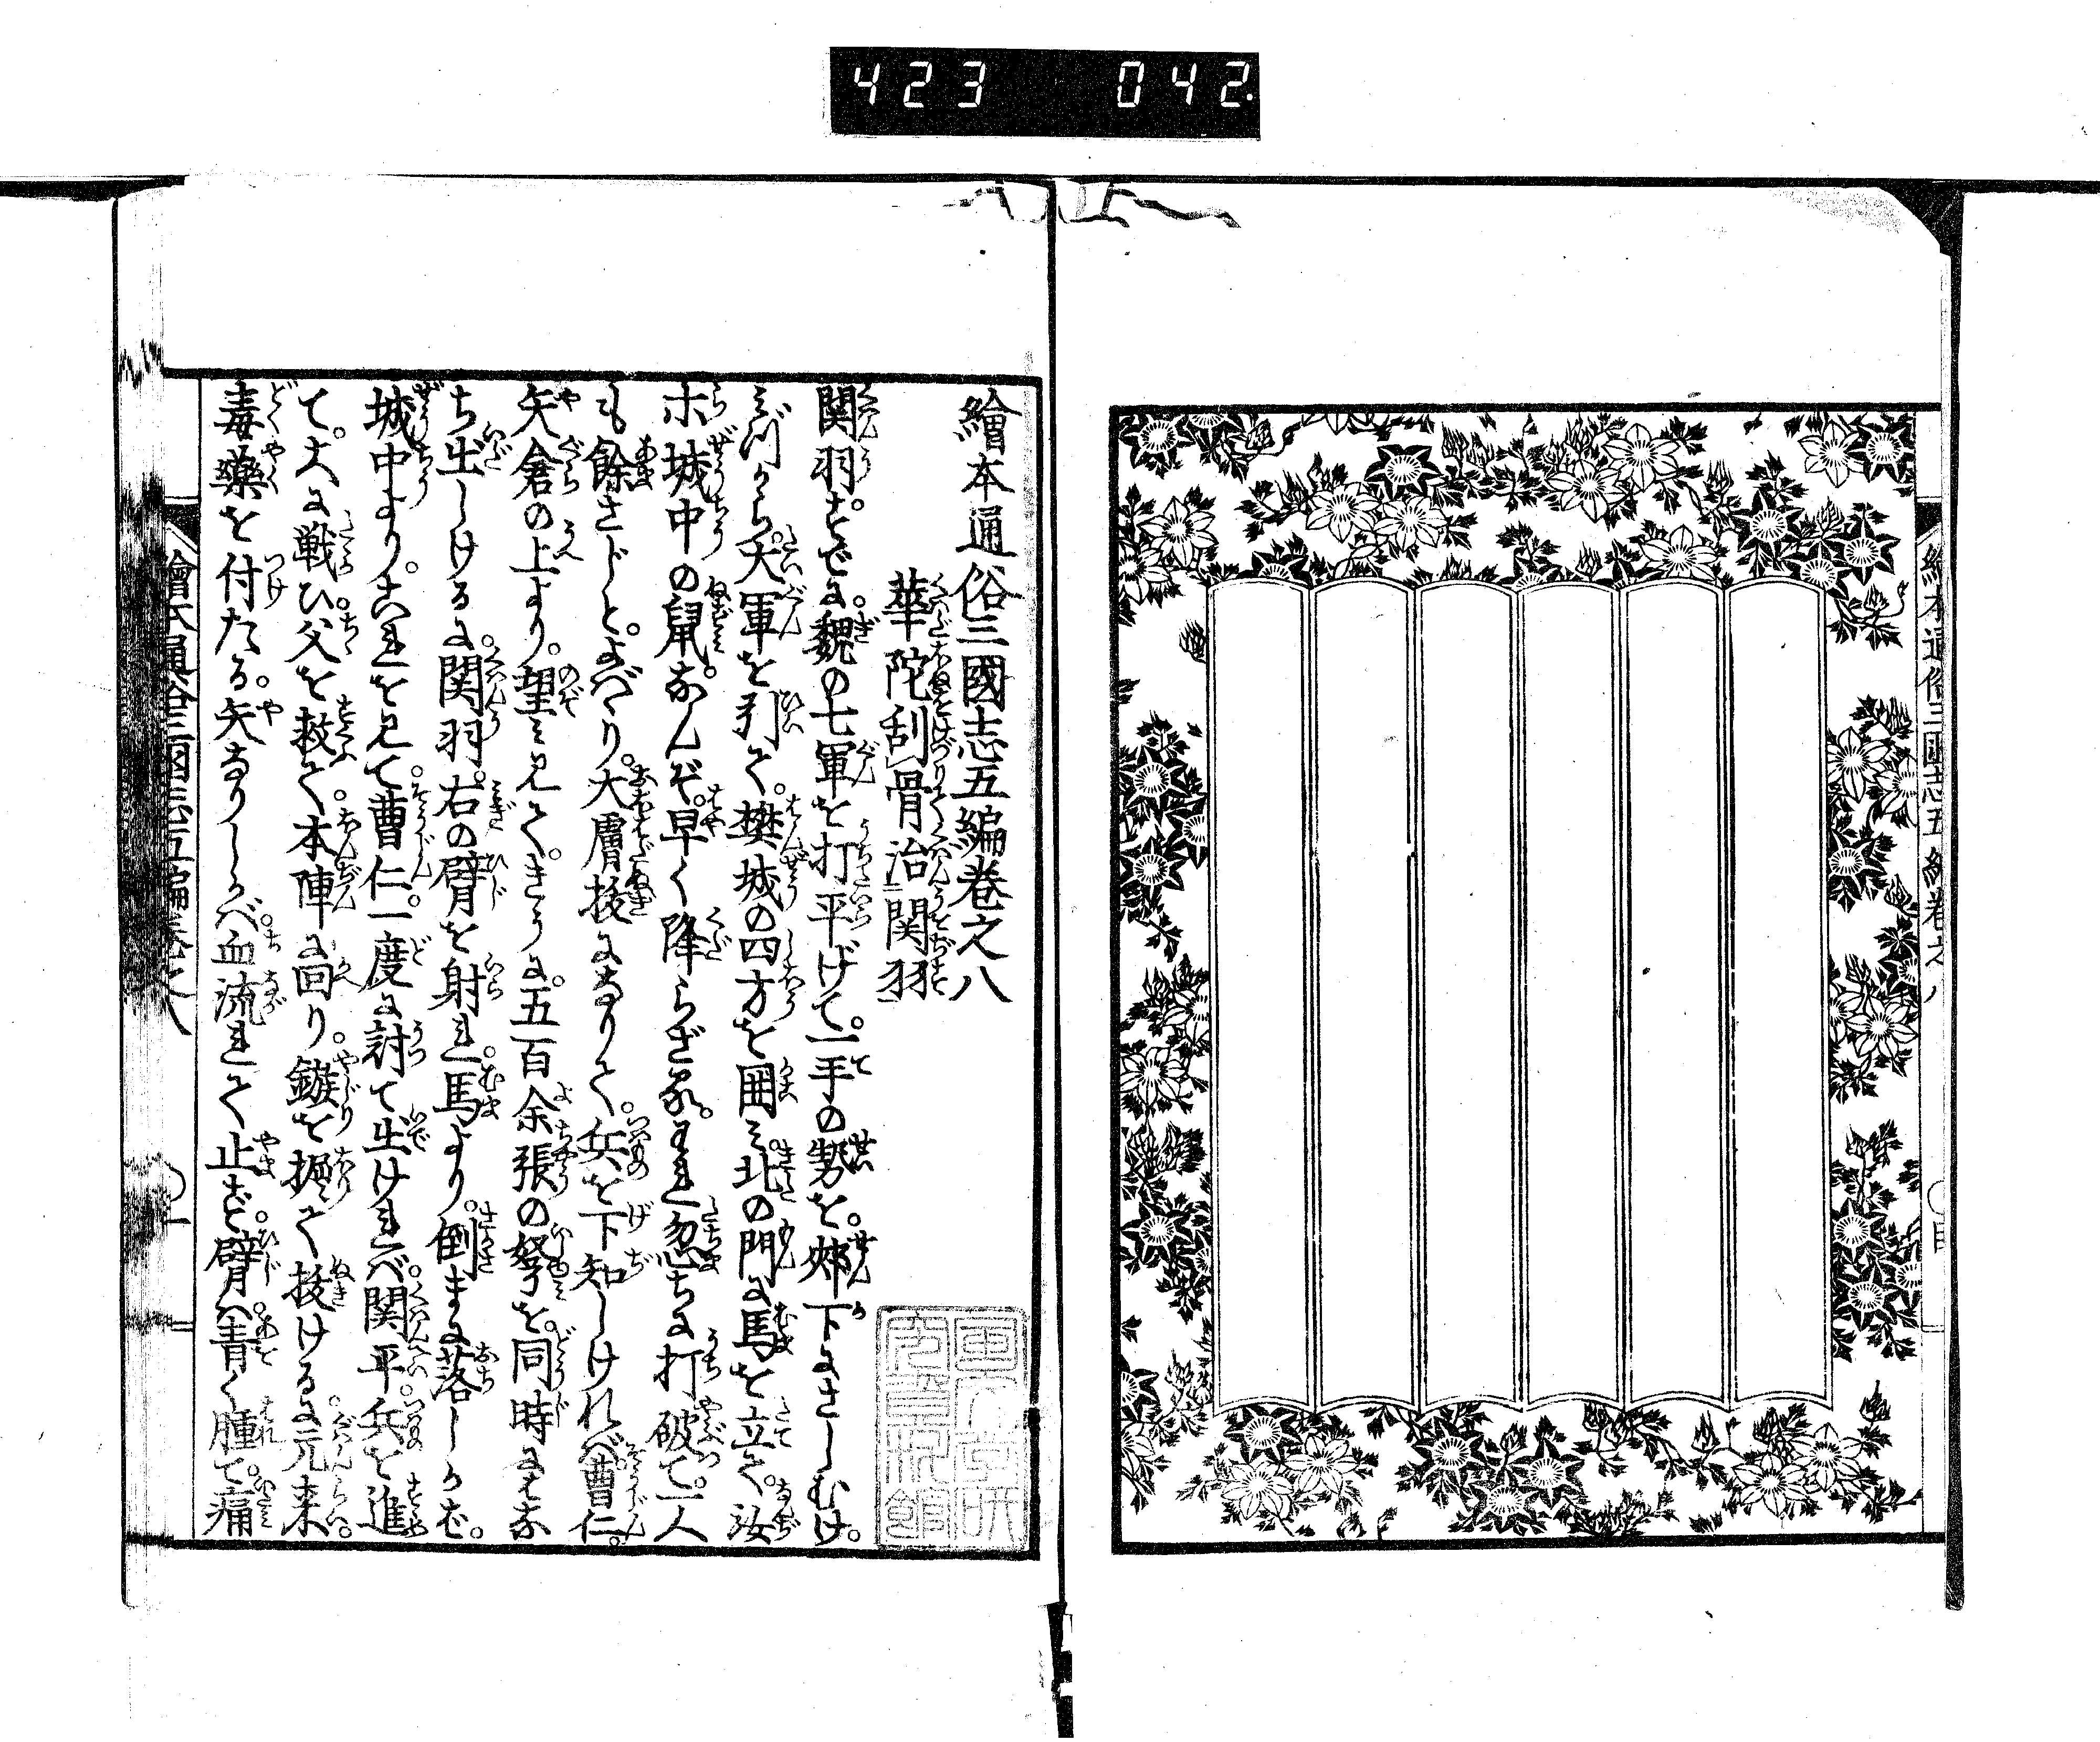 423 042.
繪本通俗三國志五編巻之八
繪本通俗三國志五編巻之八
華陀刮骨治関羽
関羽。すでに。魏の七軍を打平げて。一手の勢を。郟下にさしむけ。
みづから。大軍を引て。樊城の四方を囲み。北の門に馬を立て。汝
ホ城中の鼠。なんぞ。早く降らざる。われ忽ちに打破て。一人
も餘さじと。よばゝり。大膚抜になりて。兵を下知しければ。曹仁。
矢倉の上より。望み見て。きうに。五百余張の弩を。同時にはな
ち出しけるに。関羽。右の臂を射られ。馬より。倒まに落しかば。
城中より。これを見て。曹仁。一度に討て出ければ。関平。兵を進
て。大に戦ひ。父を救て。本陣に回り。鏃を掘て抜けるに。元来。
毒藥を付たる。矢なりしかば。血流れて止ず。臂。青く腫て。痛
繪本通俗三國志五編巻之八